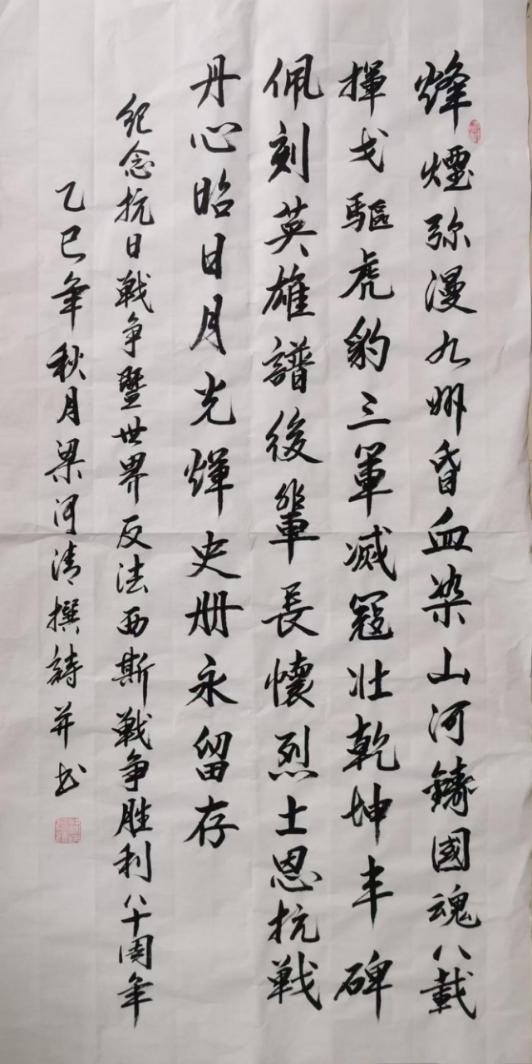 烽煙弥漫九州昏血染山河鑄國魂八載
揮戈驅虎豹三軍滅寇壯乾坤丰碑
佩刻英雄譜後輩長懷烈士恩抗戰
丹心昭日月光輝史册永留存
纪念抗日戰争暨世界反法西斯戰争胜利八十周年
乙巳年秋月梁河清撰詩并书